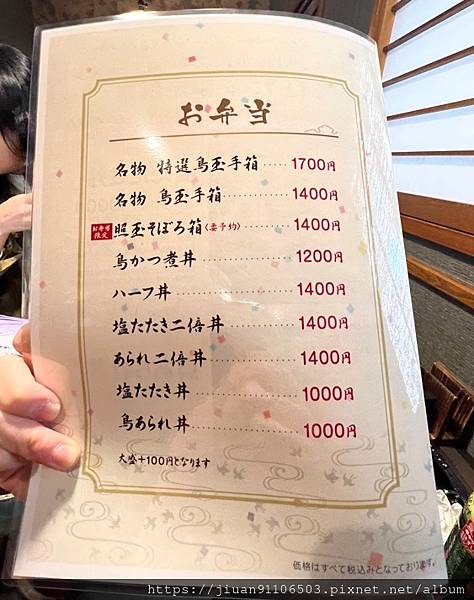 お弁当
名物 特選鳥玉手箱 ····· 1700円
名物 鳥玉手箱 ············ 1400円
お弁当限定 照玉そぼろ箱〈要予約〉 ········ 1400円
鳥かつ煮丼 ················ 1200円
ハーフ丼 ···················· 1400円
塩たたき二倍丼 ············ 1400円
あられ二倍丼 ·············· 1400円
塩たたき丼 ················ 1000円
鳥あられ丼 ················ 1000円
大盛+100円となります
価格はすべて税込みとなっております。
https://jiuan91106503.pixnet.net/album